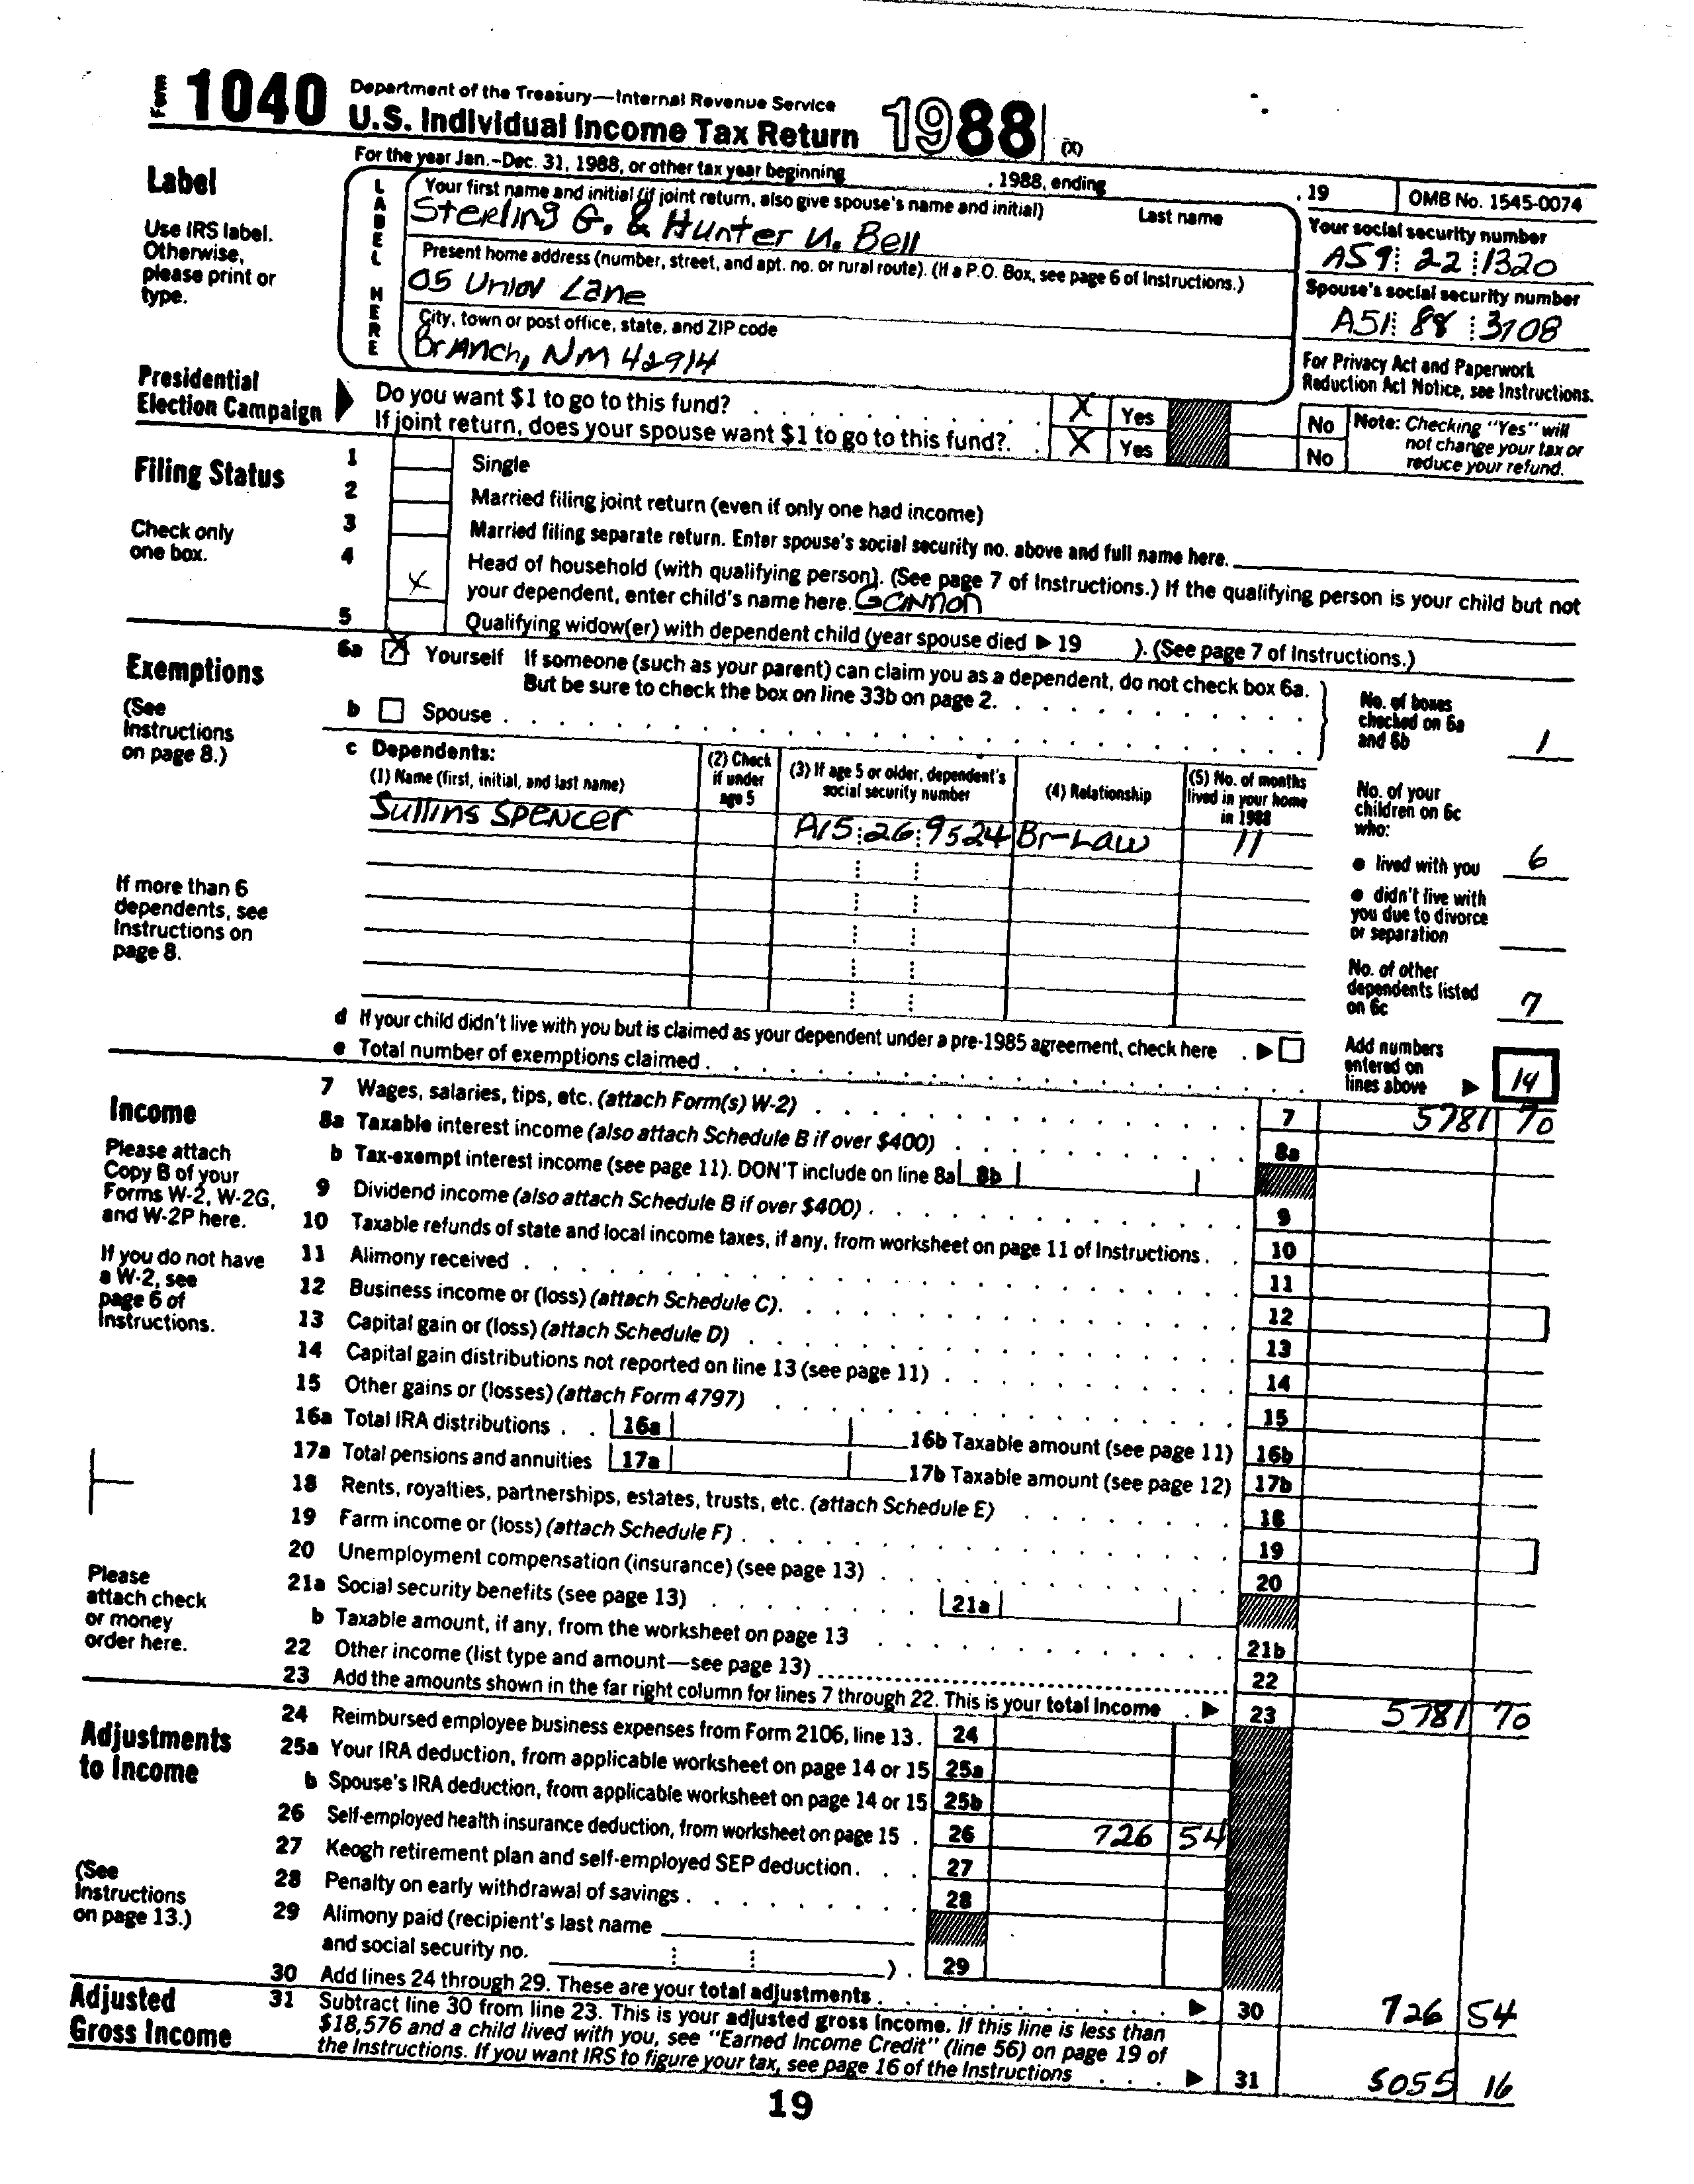 Form 1040 Department of the Treasury—Internal Revenue Service
U.S. Individual Income Tax Return 1988 (X)
For the year Jan.–Dec. 31, 1988, or other tax year beginning , 1988, ending , 19 OMB No. 1545-0074
Label
Use IRS label.
Otherwise,
please print or
type.
LABEL HERE
Your first name and initial (if joint return, also give spouse's name and initial) Last name
Sterling G. & Hunter U. Bell
Your social security number
A59 22 1320
Present home address (number, street, and apt. no. or rural route). (If a P.O. Box, see page 6 of Instructions.)
05 Union Lane
Spouse's social security number
A51 88 3108
City, town or post office, state, and ZIP code
Branch, NM 42914
For Privacy Act and Paperwork
Reduction Act Notice, see Instructions.
Presidential
Election Campaign
Do you want $1 to go to this fund? X Yes No
If joint return, does your spouse want $1 to go to this fund? X Yes No
Note: Checking "Yes" will
not change your tax or
reduce your refund.
Filing Status
Check only
one box.
1 Single
2 Married filing joint return (even if only one had income)
3 Married filing separate return. Enter spouse's social security no. above and full name here.
4 X Head of household (with qualifying person). (See page 7 of Instructions.) If the qualifying person is your child but not
your dependent, enter child's name here. Gannon
5 Qualifying widow(er) with dependent child (year spouse died ▶ 19 ). (See page 7 of Instructions.)
Exemptions
(See
Instructions
on page 8.)
6a X Yourself If someone (such as your parent) can claim you as a dependent, do not check box 6a.
But be sure to check the box on line 33b on page 2.
b Spouse
No. of boxes
checked on 6a
and 6b 1
c Dependents:
(1) Name (first, initial, and last name)
(2) Check
if under
age 5
(3) If age 5 or older, dependent's
social security number
(4) Relationship
(5) No. of months
lived in your home
in 1988
Sullins Spencer A15 26 9524 Br-Law 11
No. of your
children on 6c
who:
● lived with you 6
● didn't live with
you due to divorce
or separation
No. of other
dependents listed
on 6c 7
If more than 6
dependents, see
Instructions on
page 8.
d If your child didn't live with you but is claimed as your dependent under a pre-1985 agreement, check here ▶
e Total number of exemptions claimed
Add numbers
entered on
lines above ▶ 14
Income
Please attach
Copy B of your
Forms W-2, W-2G,
and W-2P here.
If you do not have
a W-2, see
page 6 of
Instructions.
Please
attach check
or money
order here.
7 Wages, salaries, tips, etc. (attach Form(s) W-2) 7 5781 70
8a Taxable interest income (also attach Schedule B if over $400) 8a
b Tax-exempt interest income (see page 11). DON'T include on line 8a 8b
9 Dividend income (also attach Schedule B if over $400) 9
10 Taxable refunds of state and local income taxes, if any, from worksheet on page 11 of Instructions 10
11 Alimony received 11
12 Business income or (loss) (attach Schedule C) 12
13 Capital gain or (loss) (attach Schedule D) 13
14 Capital gain distributions not reported on line 13 (see page 11) 14
15 Other gains or (losses) (attach Form 4797) 15
16a Total IRA distributions 16a 16b Taxable amount (see page 11) 16b
17a Total pensions and annuities 17a 17b Taxable amount (see page 12) 17b
18 Rents, royalties, partnerships, estates, trusts, etc. (attach Schedule E) 18
19 Farm income or (loss) (attach Schedule F) 19
20 Unemployment compensation (insurance) (see page 13) 20
21a Social security benefits (see page 13) 21a
b Taxable amount, if any, from the worksheet on page 13 21b
22 Other income (list type and amount—see page 13) 22
23 Add the amounts shown in the far right column for lines 7 through 22. This is your total income ▶ 23 5781 70
Adjustments
to Income
(See
Instructions
on page 13.)
24 Reimbursed employee business expenses from Form 2106, line 13. 24
25a Your IRA deduction, from applicable worksheet on page 14 or 15 25a
b Spouse's IRA deduction, from applicable worksheet on page 14 or 15 25b
26 Self-employed health insurance deduction, from worksheet on page 15 26 726 54
27 Keogh retirement plan and self-employed SEP deduction 27
28 Penalty on early withdrawal of savings 28
29 Alimony paid (recipient's last name
and social security no. ) 29
30 Add lines 24 through 29. These are your total adjustments ▶ 30 726 54
Adjusted
Gross Income
31 Subtract line 30 from line 23. This is your adjusted gross income. If this line is less than
$18,576 and a child lived with you, see "Earned Income Credit" (line 56) on page 19 of
the Instructions. If you want IRS to figure your tax, see page 16 of the Instructions ▶ 31 5055 16
19